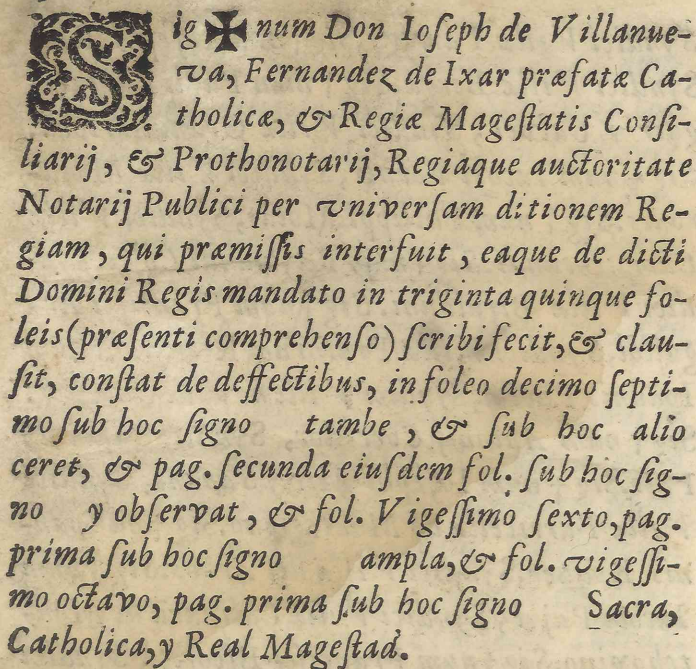 Sig✠num Don Ioſeph de Villanue-
va, Fernandez de Ixar præfatæ Ca-
tholicæ, & Regiæ Mageſtatis Conſi-
liarij, & Prothonotarij, Regiaque auctoritate
Notarij Publici per univerſam ditionem Re-
giam, qui præmiſſis interfuit, eaque de dicti
Domini Regis mandato in triginta quinque fo-
leis (præſenti comprehenſo) ſcribi fecit, & clau-
ſit, conſtat de deffectibus, in foleo decimo ſepti-
mo ſub hoc ſigno tambe, & ſub hoc alio
ceret, & pag. ſecunda eiuſdem fol. ſub hoc ſig-
no y obſervat, & fol. Vigeſſimo ſexto, pag.
prima ſub hoc ſigno ampla, & fol. vigeſſi-
mo octavo, pag. prima ſub hoc ſigno Sacra,
Catholica, y Real Mageſtad.